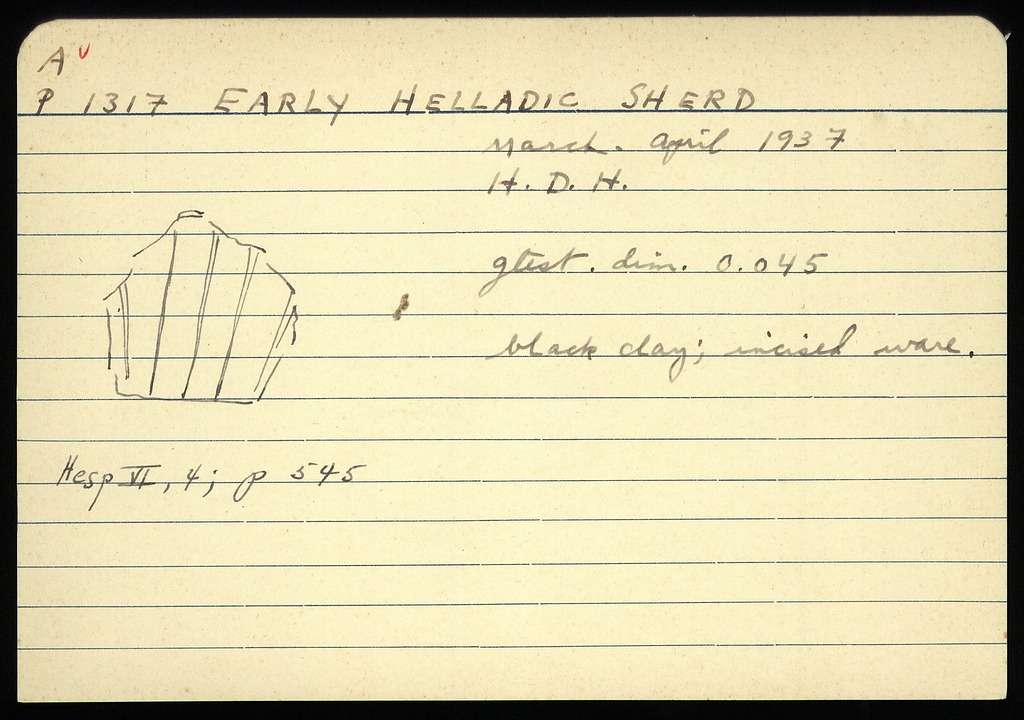 A v
P 1317 EARLY HELLADIC SHERD
March. April 1937
H. D. H.
gtest. dim. 0.045
black clay; incised ware.
Hesp VI, 4; p 545